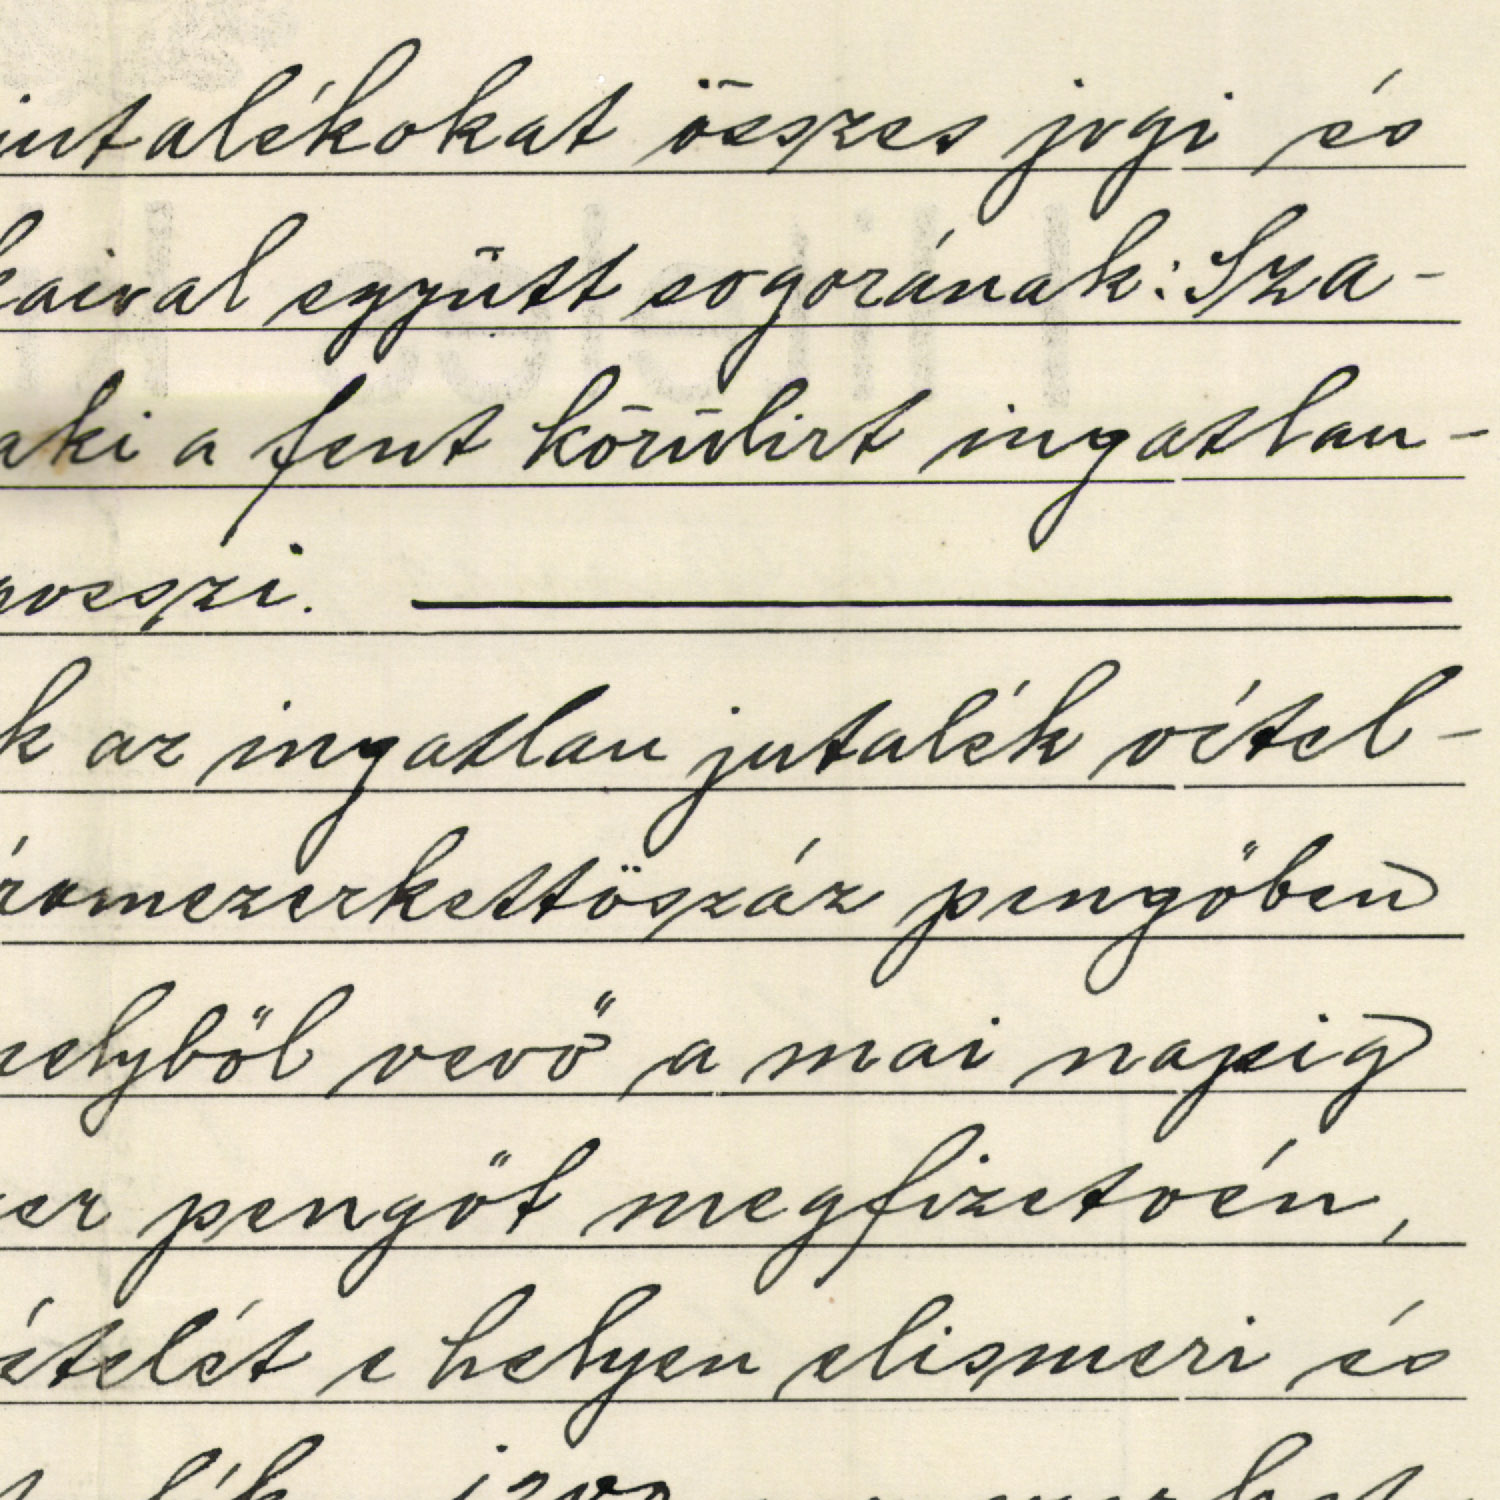 jutalékokat összes jogi és
kaival együtt sogorának: Sza-
aki a fent körülirt ingatlan-
vesszi.
k az ingatlan jutalék vétel-
áromezerkettöszáz pengőben
melyből vevő a mai napig
zer pengőt megfizetvén,
ételét e helyen elismeri és